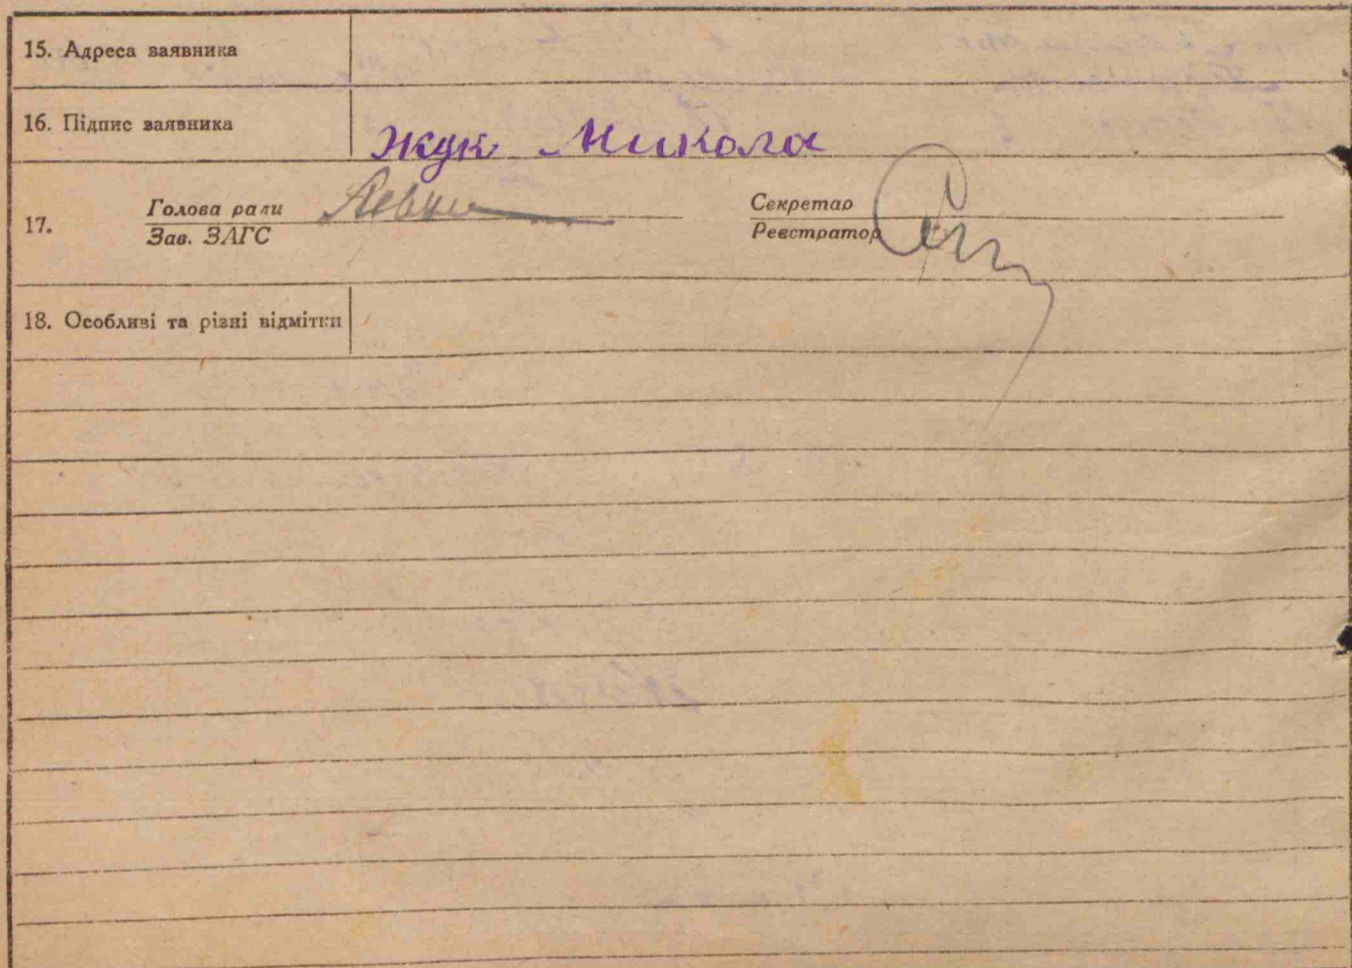 15. Адреса заявника
16. Підпис заявника Жук Микола
17. Голова ради Секретар
Зав. ЗАГС Реєстратор
18. Особливі та різні відмітки